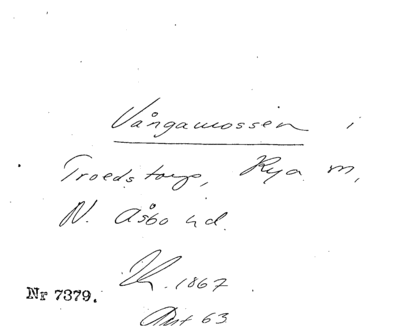 Vångamossen i
Troedstorp, Rya m,
N. Åsbo hd.
1867
Nr 7379.
63